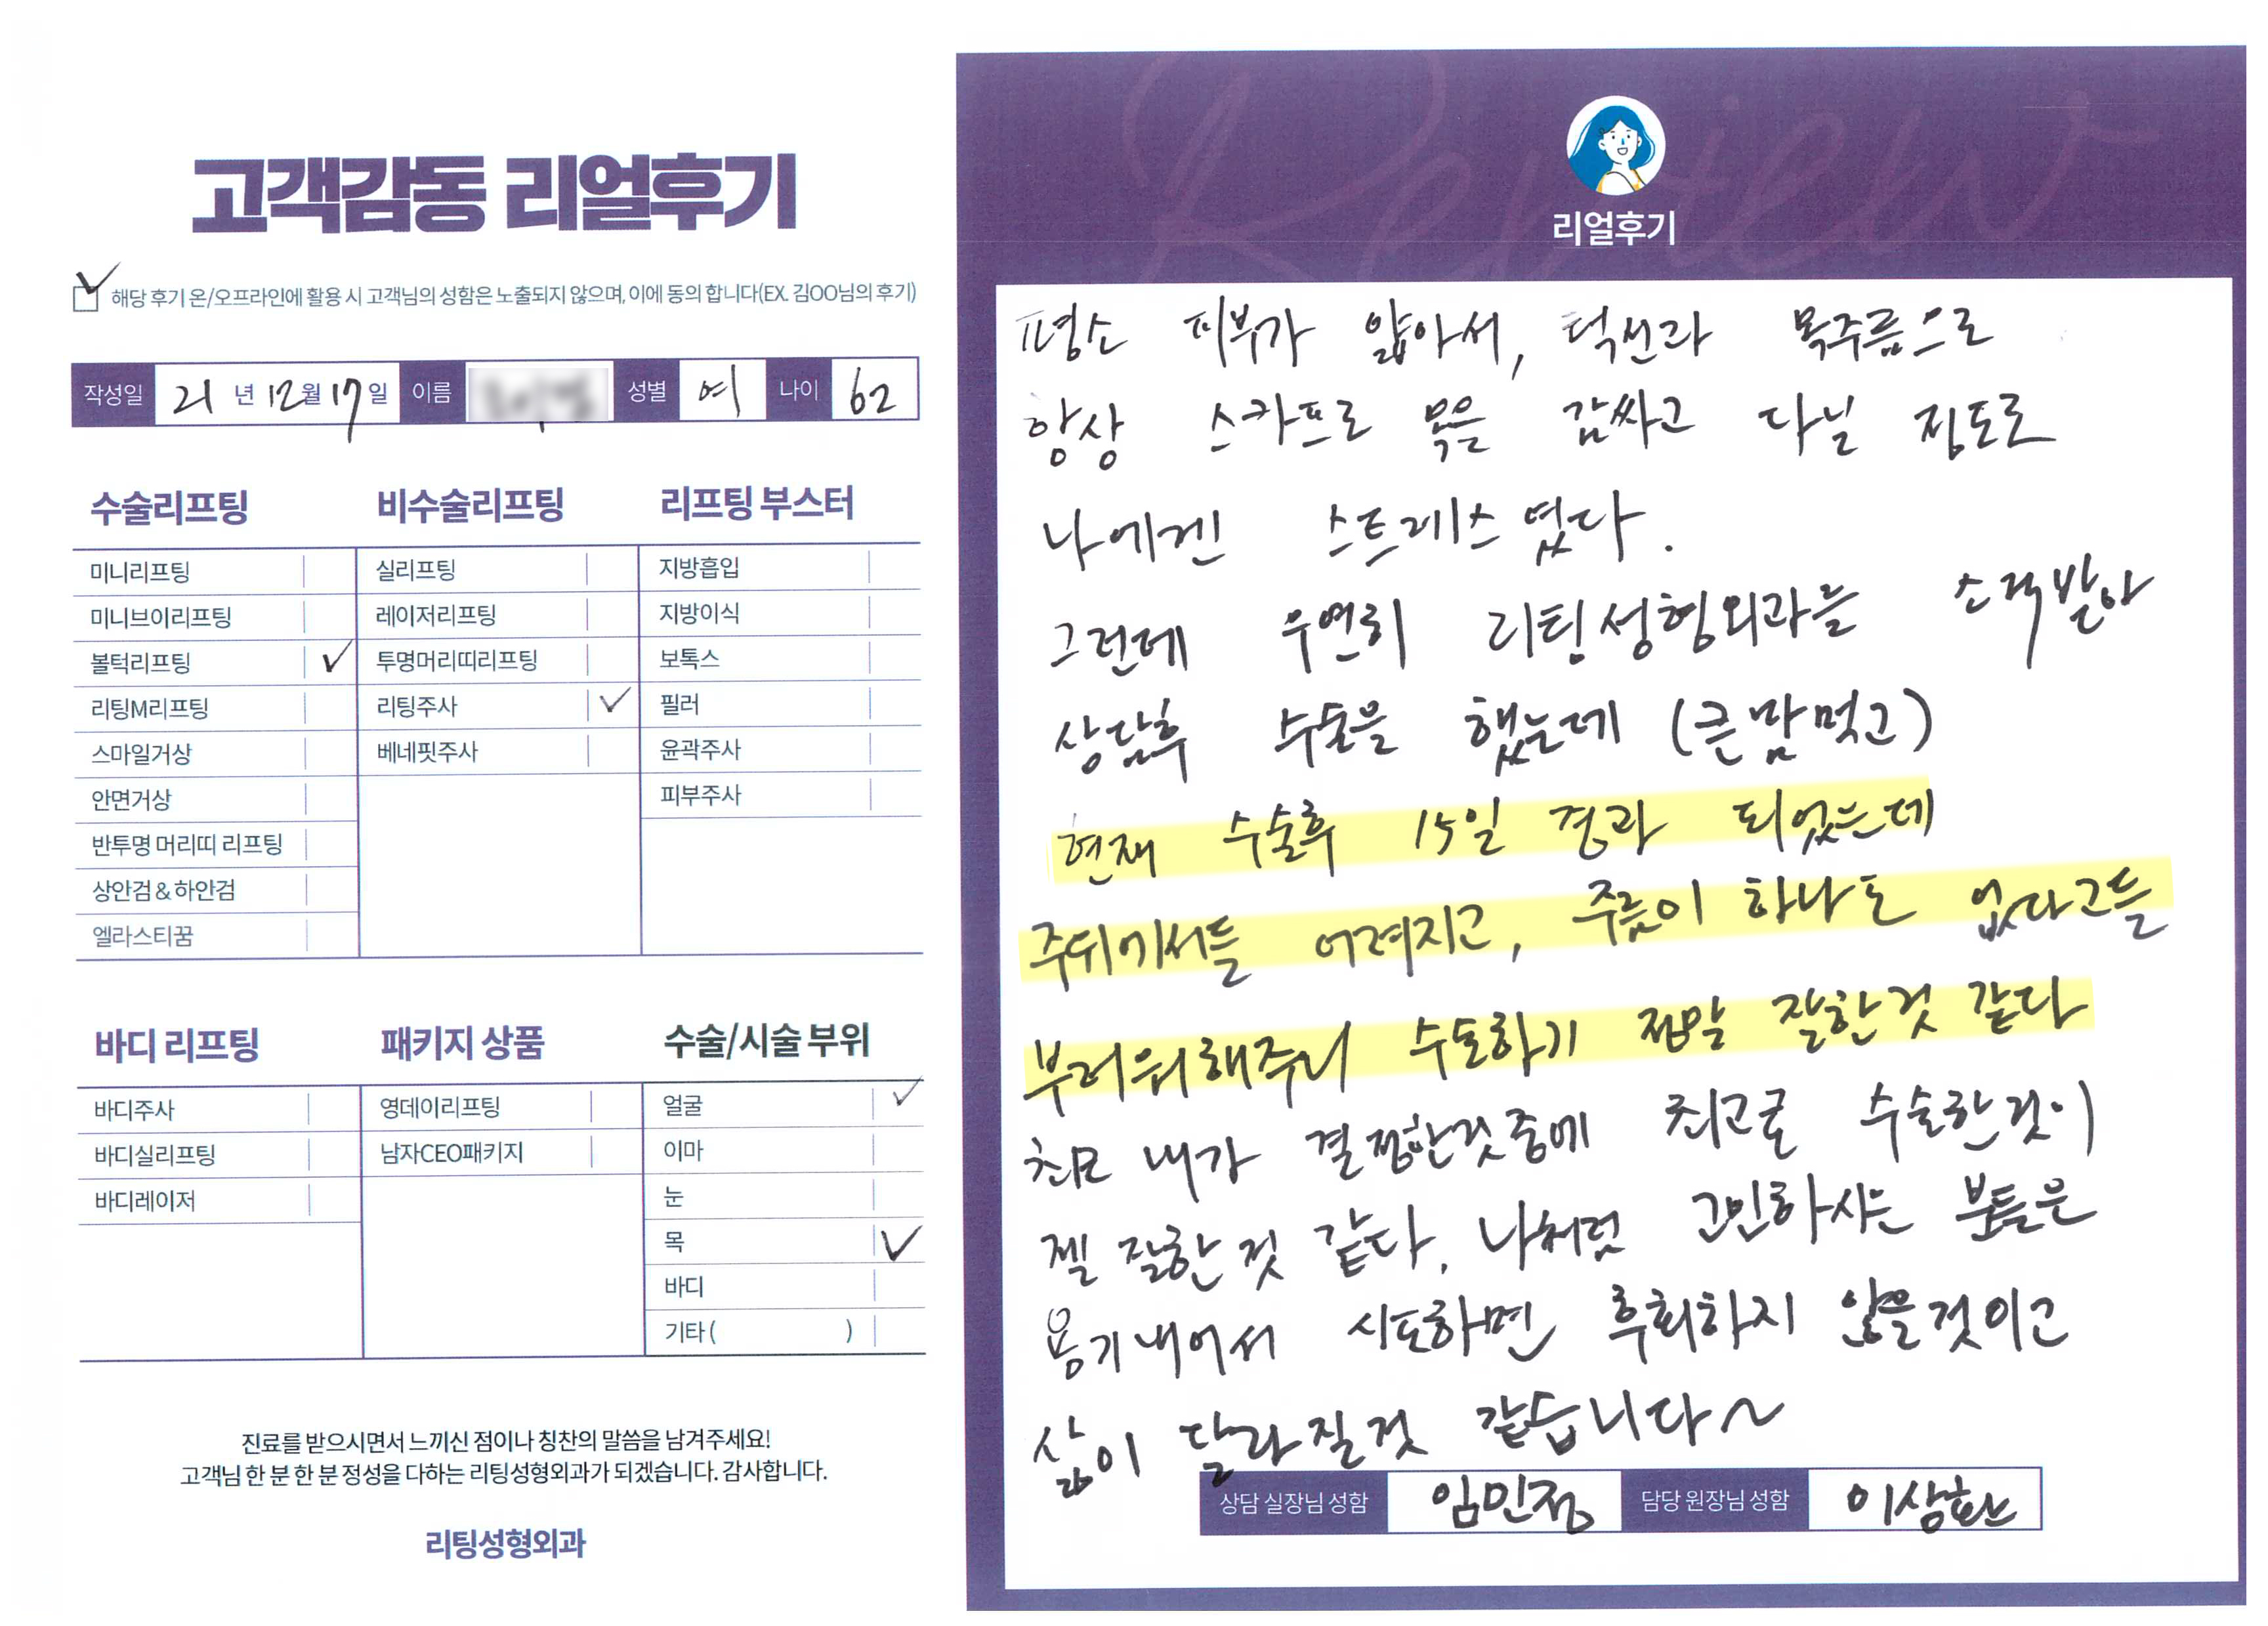 고객감동 리얼후기
해당 후기 온/오프라인에 활용 시 고객님의 성함은 노출되지 않으며, 이에 동의 합니다(EX. 김OO님의 후기)
작성일 21 년 12 월 17 일 이름 성별 여 나이 62
수술리프팅
미니리프팅
미니브이리프팅
볼턱리프팅 ✓
리팅M리프팅
스마일거상
안면거상
반투명 머리띠 리프팅
상안검 & 하안검
엘라스티꿈
비수술리프팅
실리프팅
레이저리프팅
투명머리띠리프팅
리팅주사 ✓
베네핏주사
리프팅 부스터
지방흡입
지방이식
보톡스
필러
윤곽주사
피부주사
바디 리프팅
바디주사
바디실리프팅
바디레이저
패키지 상품
영데이리프팅
남자CEO패키지
수술/시술 부위
얼굴 ✓
이마
눈
목 ✓
바디
기타 ( )
진료를 받으시면서 느끼신 점이나 칭찬의 말씀을 남겨주세요!
고객님 한 분 한 분 정성을 다하는 리팅성형외과가 되겠습니다. 감사합니다.
리팅성형외과
Review
리얼후기
평소 피부가 얇아서, 턱선과 목주름으로
항상 스카프로 목을 감싸고 다닐 정도로
나에겐 스트레스였다.
그런데 우연히 리팅성형외과를 소개받아
상담후 수술을 했는데 (큰맘먹고)
현재 수술후 15일 경과 되었는데
주위에서들 어려지고, 주름이 하나도 없다고들
부러워해주니 수술하기 정말 잘한것 같다
내가 결정한것중에 최고로 수술한것이
젤 잘한것 같다. 나처럼 고민하시는 분들은
용기내어서 시도하면 후회하지 않을것이고
삶이 달라질것 같습니다~
상담 실장님 성함 임민정 담당 원장님 성함 이상환